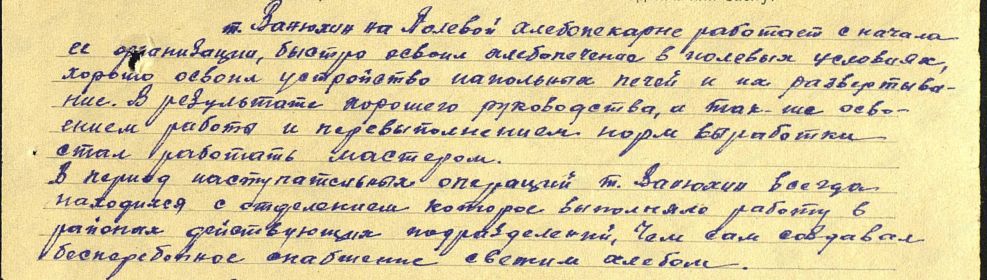 т. Ванюхин на Полевой хлебопекарне работает с начала
ее организации, быстро освоил хлебопечение в полевых условиях,
хорошо освоил устройство напольных печей и их развертыва-
ние. В результате хорошего руководства, а так-же осво-
ением работы и перевыполнением норм выработки
стал работать мастером.
В период наступательных операций т. Ванюхин всегда
находился с отделением которое выполняло работу в
районах действующих подразделений, Чем сам создавал
бесперебойное снабжение свежим хлебом.